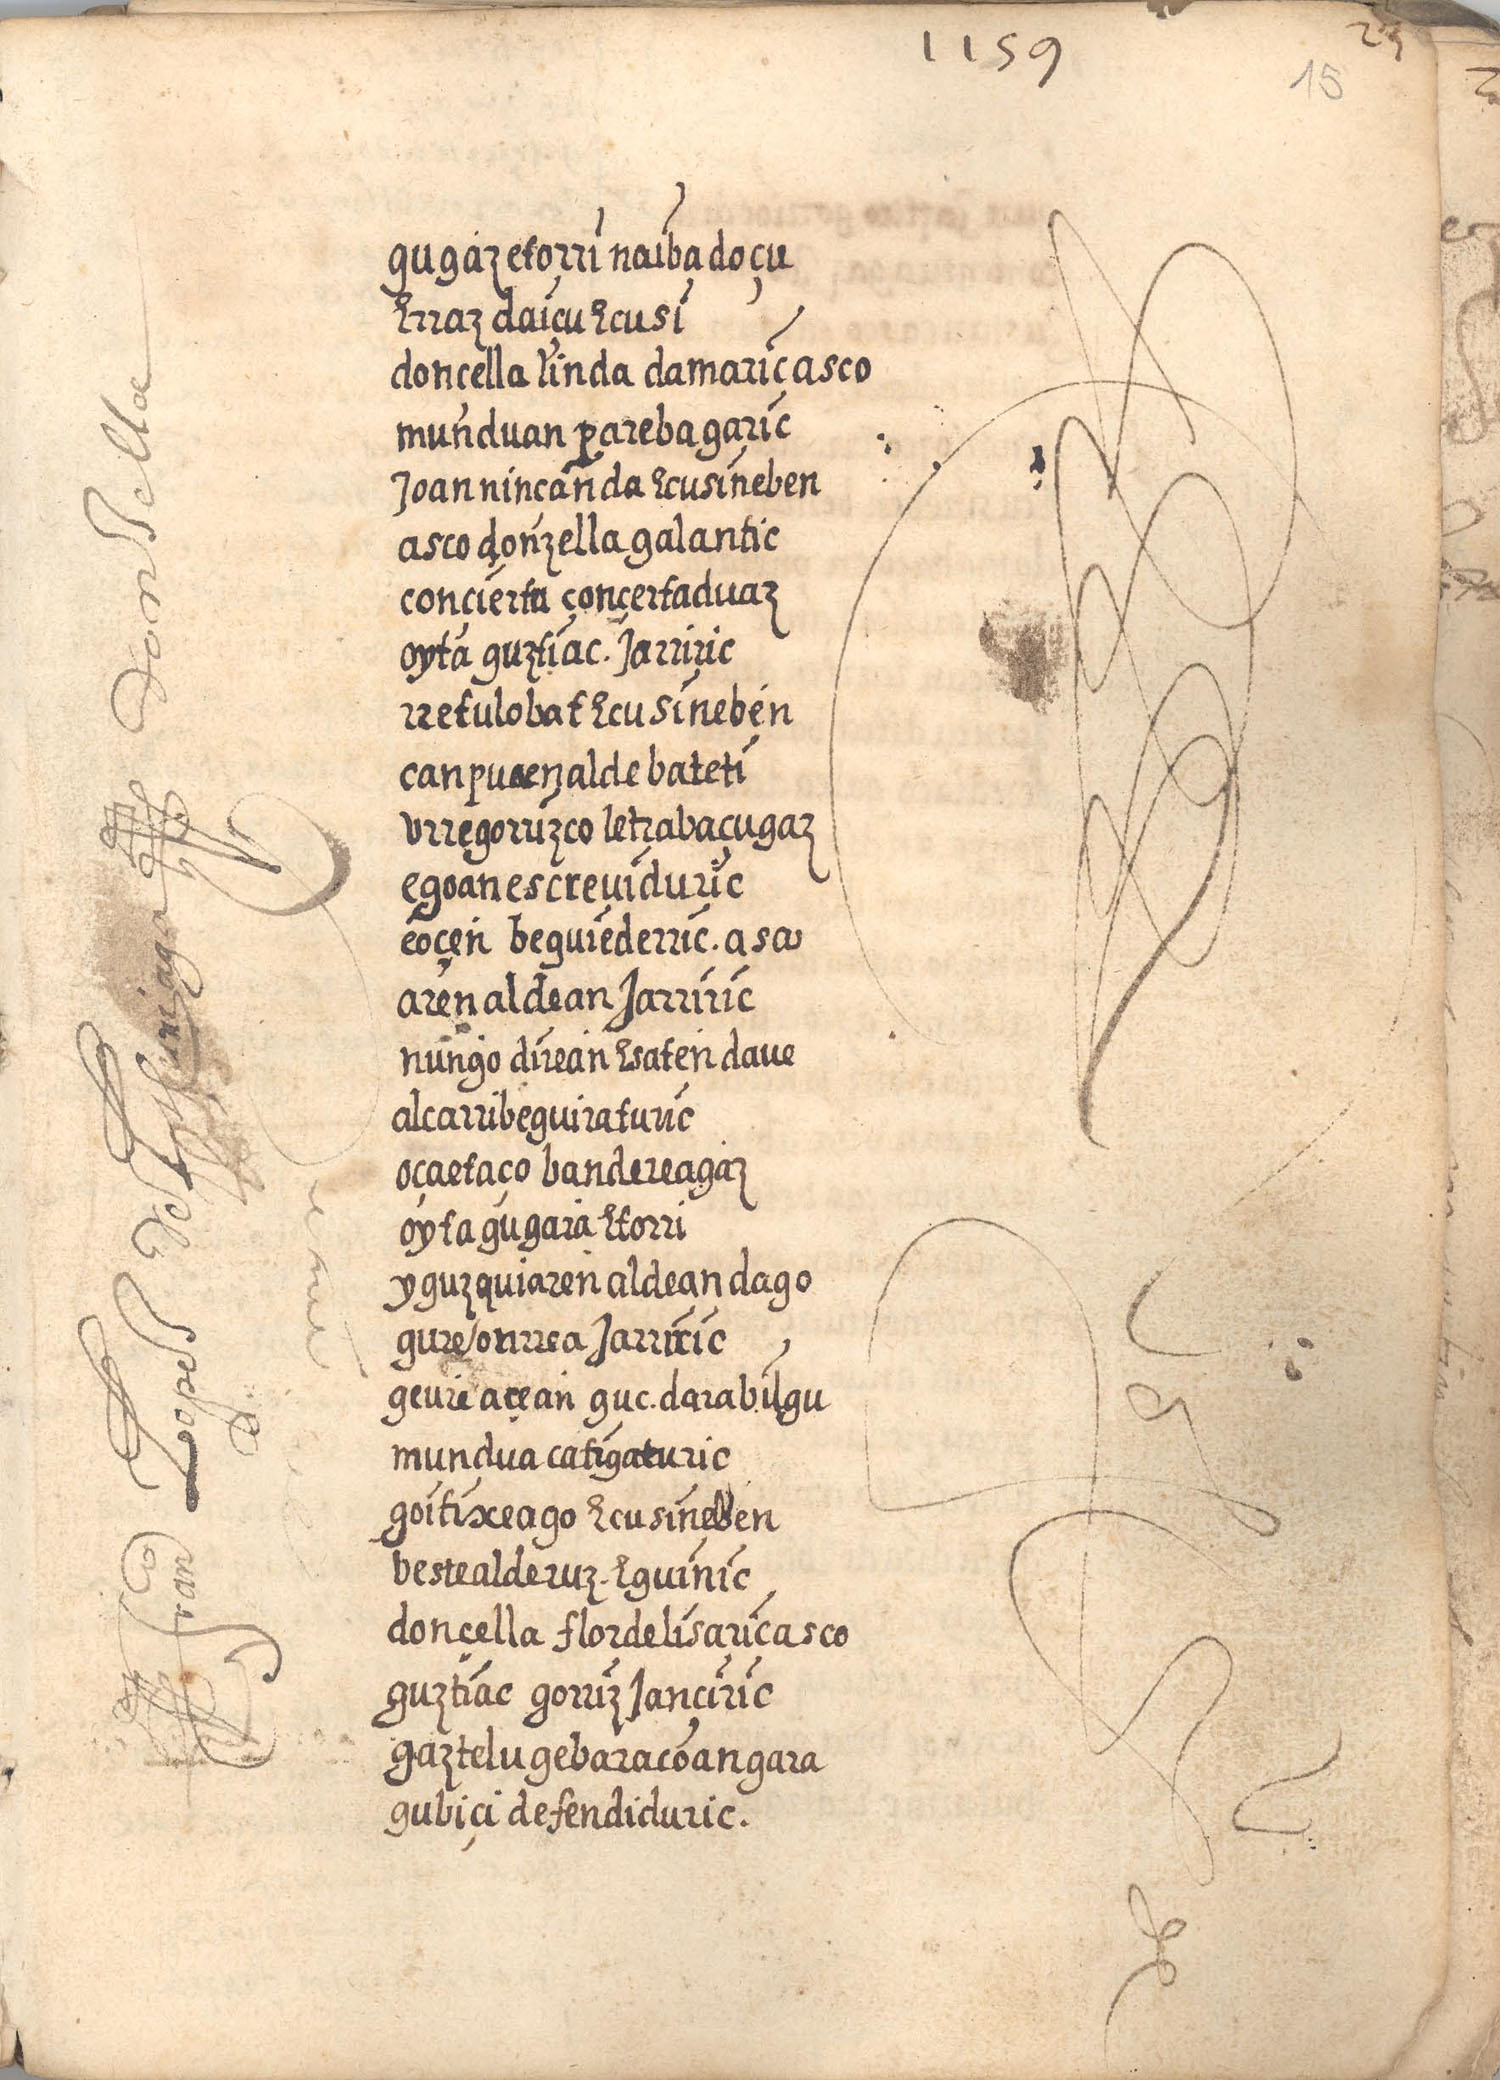 1159
23
15
gugaz etorri naibadoçu
Erraz daiçu Ecusi
doncella linda damariçasco
munduan parebagaric
Joannincanda Ecusineben
asco donzella galantic
concierta conçertaduaz
oyta guztiac. Jarriric
rretulobat Ecusineben
canpuaen aldebateti
vrregorrizco letrabaçugaz
egoan escreuiduric
eoçein beguiederric. asco
aren aldean Jarriric
nungo direan Esaten daue
alcarri beguiraturic
oçaetaco bandereagaz
oyta gugaia Etorri
yguzquiaren aldean dago
gure onrrea Jarriric
geure aceari guc. darabilgu
mundua catigaturic
goitixeago Ecusineben
beste alderuz. Eguinic
doncella flordelisariçasco
guztiac gorriz Janciric
gaztelu gebaracoan gara
gubiçi defendiduric.
fran Lopess de donsella